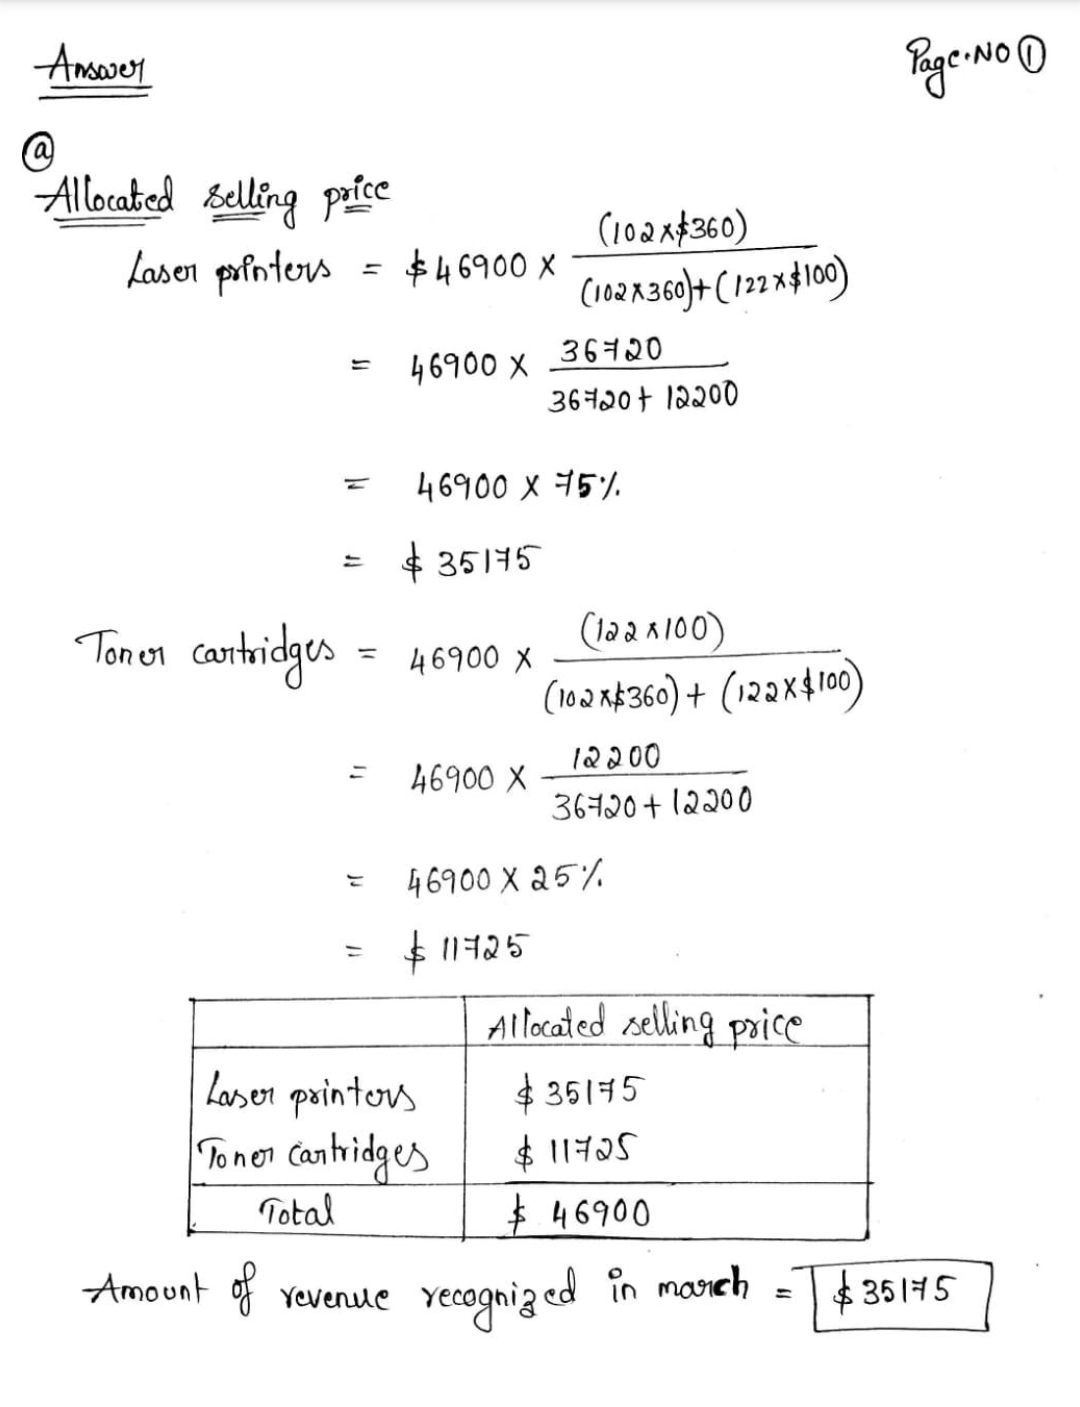 Answer
Page.NO ①
ⓐ
Allocated selling price
Laser printers = $46900 × (102×$360) / (102×360)+(122×$100)
= 46900 × 36720 / 36720+12200
= 46900 × 75%
= $35175
Toner cartridges = 46900 × (122×100) / (102×$360)+(122×$100)
= 46900 × 12200 / 36720+12200
= 46900 × 25%
= $11725
Allocated selling price
Laser printers $35175
Toner cartridges $11725
Total $46900
Amount of revenue recognized in march = $35175